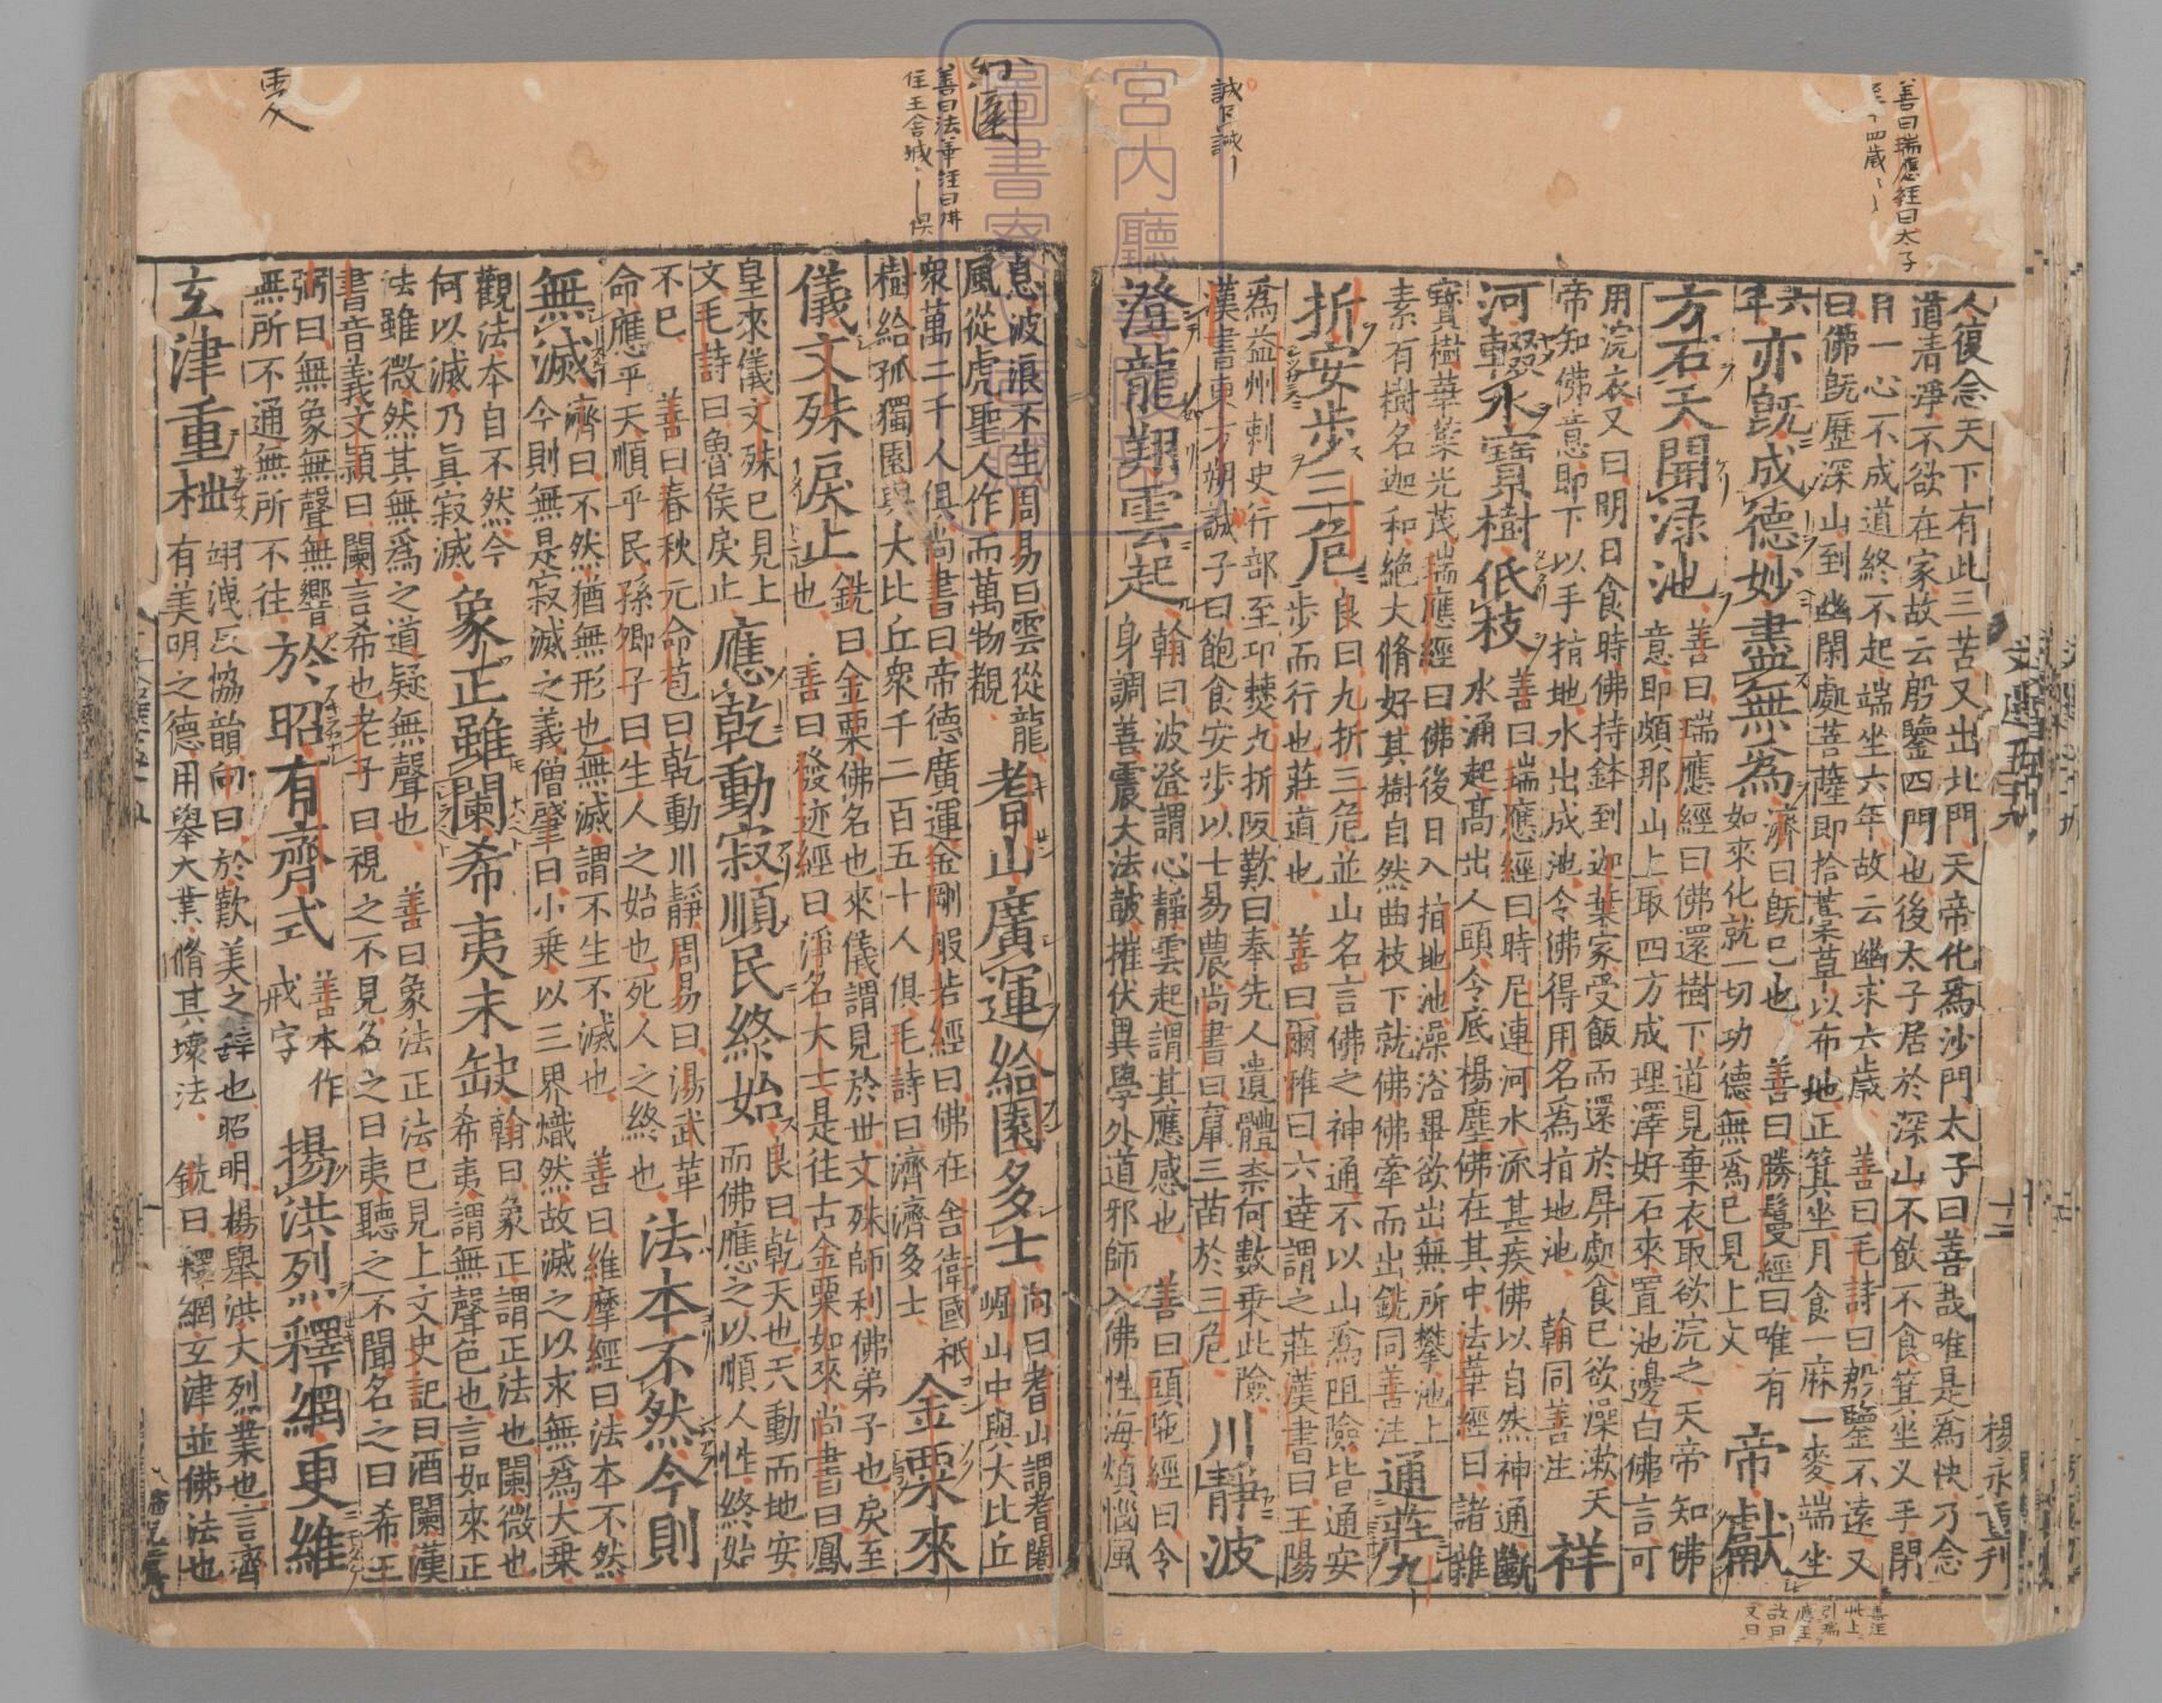 善曰瑞應經曰太子
人復念天下有此三苦又出北門天帝化爲沙門太子曰善哉唯是爲快乃念
道清淨不欲在家故云殷鑒四門也後太子居於深山不飲不食箕坐叉手閉
目一心不成道終不起端坐六年故云幽求六歲 善曰毛詩曰殷鑒不遠又
曰佛旣歷深山到幽閑處菩薩即拾藁草以布地正箕坐月食一麻一麥端坐
六年 亦旣成德妙盡無爲 濟曰旣已也 善曰勝鬘經曰唯有
如來化就一切功德無爲已見上文 帝獻
方石天開渌池 善曰瑞應經曰佛還樹下道見棄衣取欲浣之天帝知佛
意即頗那山上取四方成理澤好石來置池邊白佛言可
用浣衣又曰明日食時佛持鉢到迦葉家受飯而還於屏處食已欲澡漱天
帝知佛意即下以手指地水出成池令佛得用名爲指地池 翰同善注 祥
河輟水寶樹低枝 善曰瑞應經曰時尼連河水流甚疾佛以自然神通斷
水涌起高出人頭令底楊塵佛在其中法華經曰諸雜
寶樹華葉光茂瑞應經曰佛後日入指地池澡浴畢欲出無所攀池上
素有樹名迦和絕大脩好其樹自然曲枝下就佛佛牽而出銑同善注 通莊九
折安步三危 良曰九折三危並山名言佛之神通不以山爲阻險皆通安
步而行也莊道也 善曰爾雅曰六達謂之莊漢書曰王陽
爲益州刺史行部至邛僰九折阪歎曰奉先人遺體柰何數乘此險
漢書東方朔誡子曰飽食安步以士易農尚書曰竄三苗於三危 川靜波
澄龍翔雲起 翰曰波澄謂心靜雲起謂其應感也 善曰頭陁經曰令
身調善震大法鼓摧伏異學外道邪師入佛性海煩惱風
楊永重刋
宮内廳
圖書寮
息波浪不生周易曰雲從龍
風從虎聖人作而萬物覩 耆山廣運給園多士 向曰耆山謂耆闍
崛山中與大比丘
衆萬二千人俱尚書曰帝德廣運金剛般若經曰佛在舍衛國祇
樹給孤獨園與大比丘衆千二百五十人俱毛詩曰濟濟多士 金粟來
儀文殊戾止 銑曰金粟佛名也來儀謂見於丗文殊師利佛弟子也戾至
也 善曰發迹經曰淨名大士是往古金粟如來尚書曰鳳
皇來儀文殊已見上
文毛詩曰魯侯戾止 應乾動寂順民終始 良曰乾天也天動而地安
而佛應之以順人性終始
不已 善曰春秋元命苞曰乾動川靜周易曰湯武革
命應乎天順乎民孫卿子曰生人之始也死人之終也 法本不然今則
無滅 濟曰不然猶無形也無滅謂不生不滅也 善曰維摩經曰法本不然
今則無是寂滅之義僧肇曰小乘以三界熾然故滅之以求無爲大乘
觀法本自不然今
何以滅乃眞寂滅 象正雖闌希夷未缺 翰曰象正謂正法也闌微也
希夷謂無聲色也言如來正
法雖微然其無爲之道疑無聲也 善曰象法正法已見上文史記曰酒闌漢
書音義文穎曰闌言希也老子曰視之不見名之曰夷聽之不聞名之曰希王
弼曰無象無聲無響
無所不通無所不往 於昭有齊式 善本作
戒字 揚洪烈釋網更維
玄津重枻 翊洩反協韻向曰於歎美之辭也昭明楊舉洪大烈業也言齊
有美明之德用舉大業脩其壞法 銑曰釋網玄津並佛法也